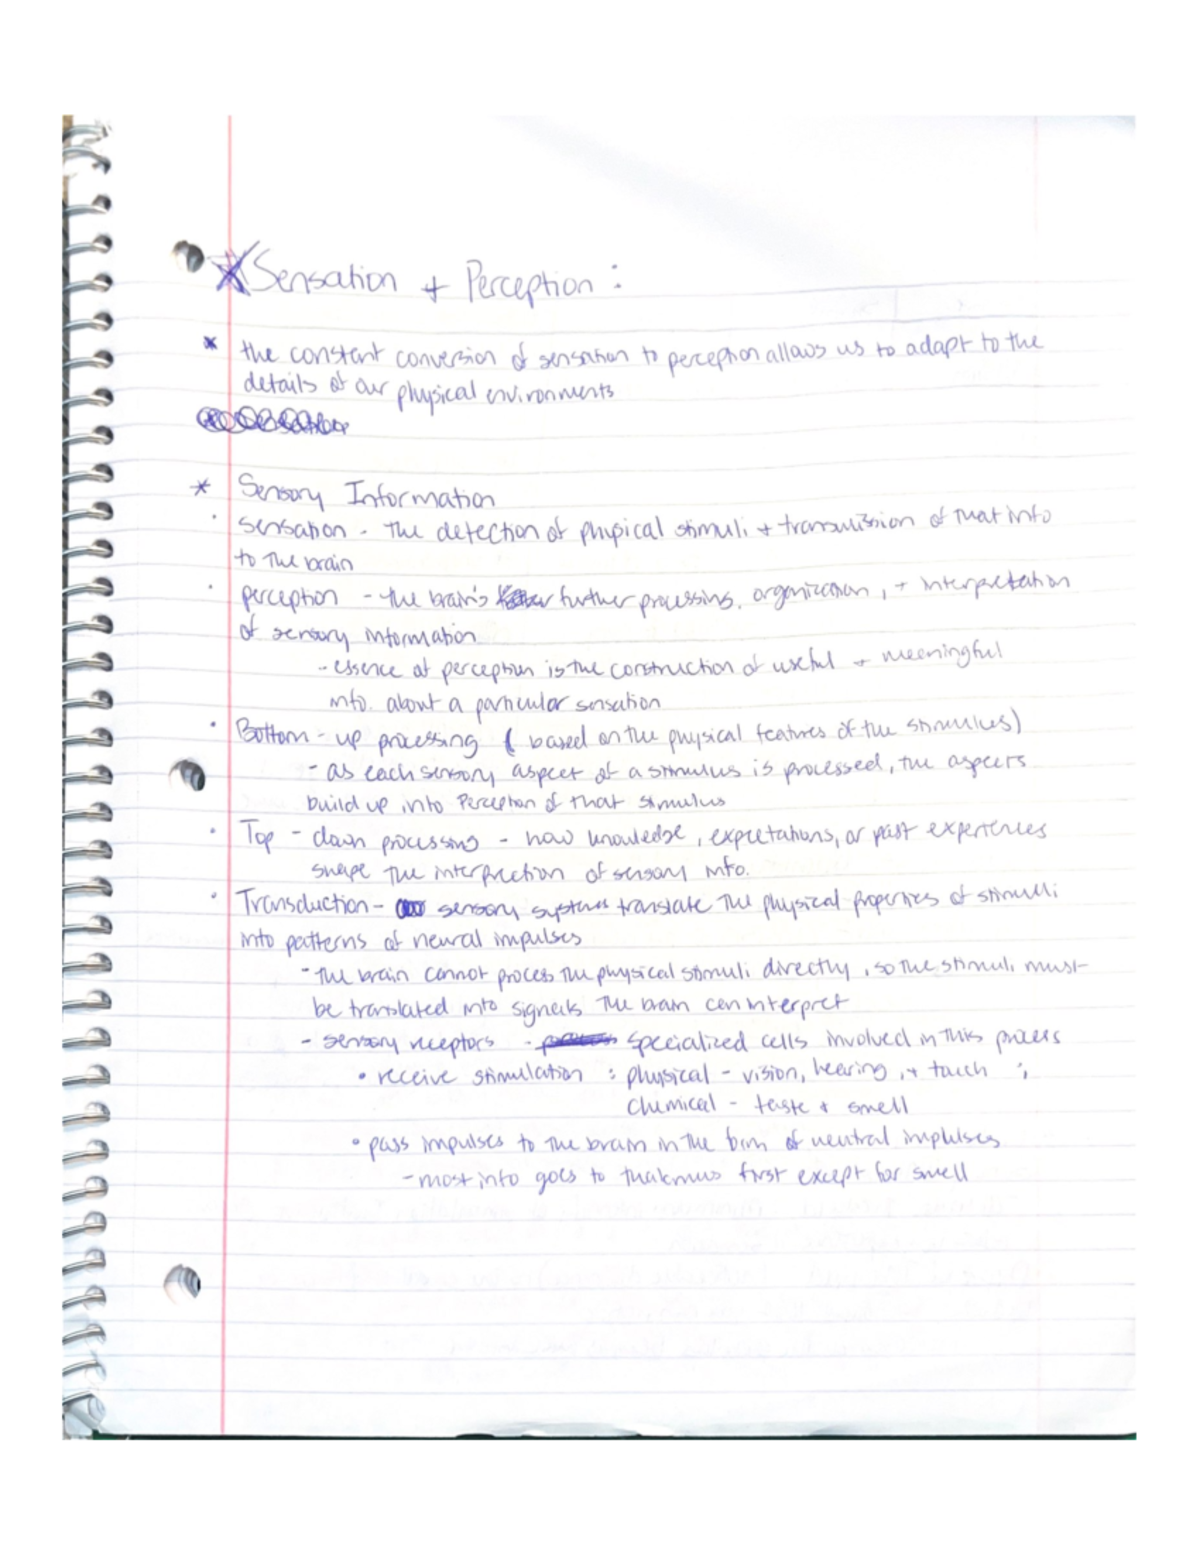 * Sensation + Perception :
* the constant conversion of sensation to perception allows us to adapt to the
details of our physical environments
* Sensory Information
· sensation - the detection of physical stimuli + transmission of that info
to the brain
· perception - the brain's further processing, organization, + interpretation
of sensory information
- essence of perception is the construction of useful + meaningful
info. about a particular sensation
· Bottom - up processing ( based on the physical features of the stimulus)
- as each sensory aspect of a stimulus is processed, the aspects
build up into Perception of that stimulus
· Top - down processing - how knowledge, expectations, or past experiences
shape the interpretation of sensory info.
· Transduction - sensory systems translate the physical properties of stimuli
into patterns of neural impulses
- the brain cannot process the physical stimuli directly, so the stimuli must
be translated into signals the brain can interpret
- sensory receptors - specialized cells involved in this process
• receive stimulation : physical - vision, hearing, + touch ;
chemical - taste + smell
• pass impulses to the brain in the form of neutral impulses
- most info goes to thalamus first except for smell